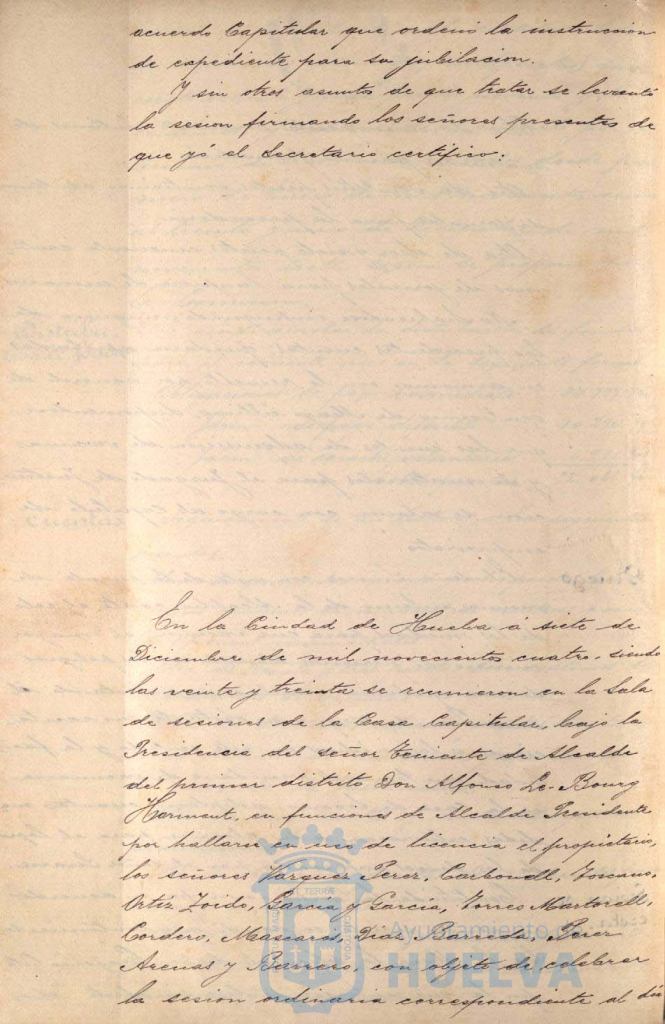 acuerdo Capitular que ordenó la instruccion
de expediente para su jubilacion.
Y sin otros asuntos de que tratar se levantó
la sesion firmando los señores presentes de
que yó el Secretario certifico:
En la Ciudad de Huelva á siete de
Diciembre de mil novecientos cuatro, siendo
las veinte y treinta se reunieron en la Sala
de sesiones de la Casa Capitular, bajo la
Presidencia del señor Teniente de Alcalde
del primer distrito Don Alfonso Le-Bourg
Hermant, en funciones de Alcalde Presidente
por hallarse en uso de licencia el propietario,
los señores Vazquez Perez, Carbonell, Toscano,
Ortiz Zoido, Garcia y Garcia, Torres Martorell,
Cordero, Mascarós, Diaz Barreda, Perez
Arenas y Barrero, con objeto de celebrar
la sesion ordinaria correspondiente al dia
Ayuntamiento de
HUELVA